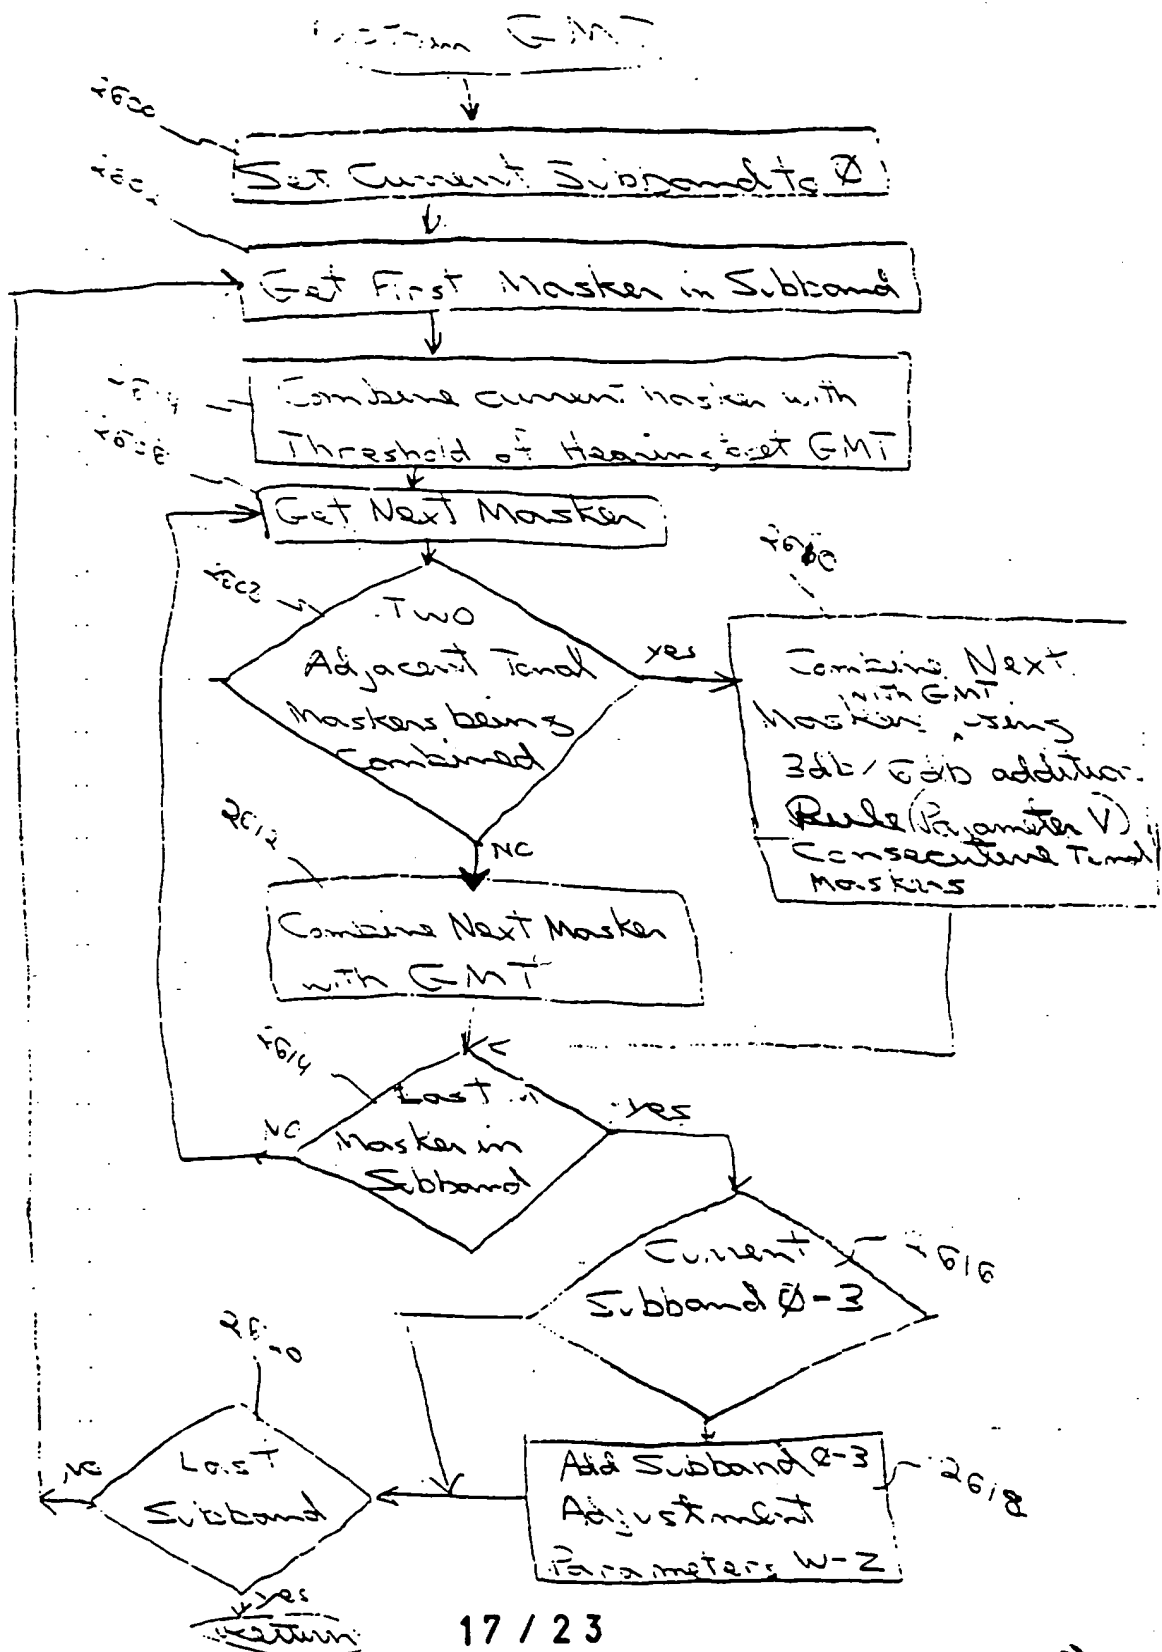 GMT
2600
Set Current Subband to Ø
Get First Masker in Subband
Combine current masker with
Threshold of Hearing, get GMT
Get Next Masker
Two
Adjacent Tonal
Maskers being
Combined
yes
Combine Next
with GMT
Masker, using
3db/6db addition
Rule (Parameter V)
Consecutive Tonal
Maskers
2612
NO
Combine Next Masker
with GMT
2614
Last
Masker in
Subband
NO
yes
Current
Subband Ø-3
2616
Last
Subband
NO
Add Subband Ø-3
Adjustment
Parameters W-Z
2618
yes
Return
17/23